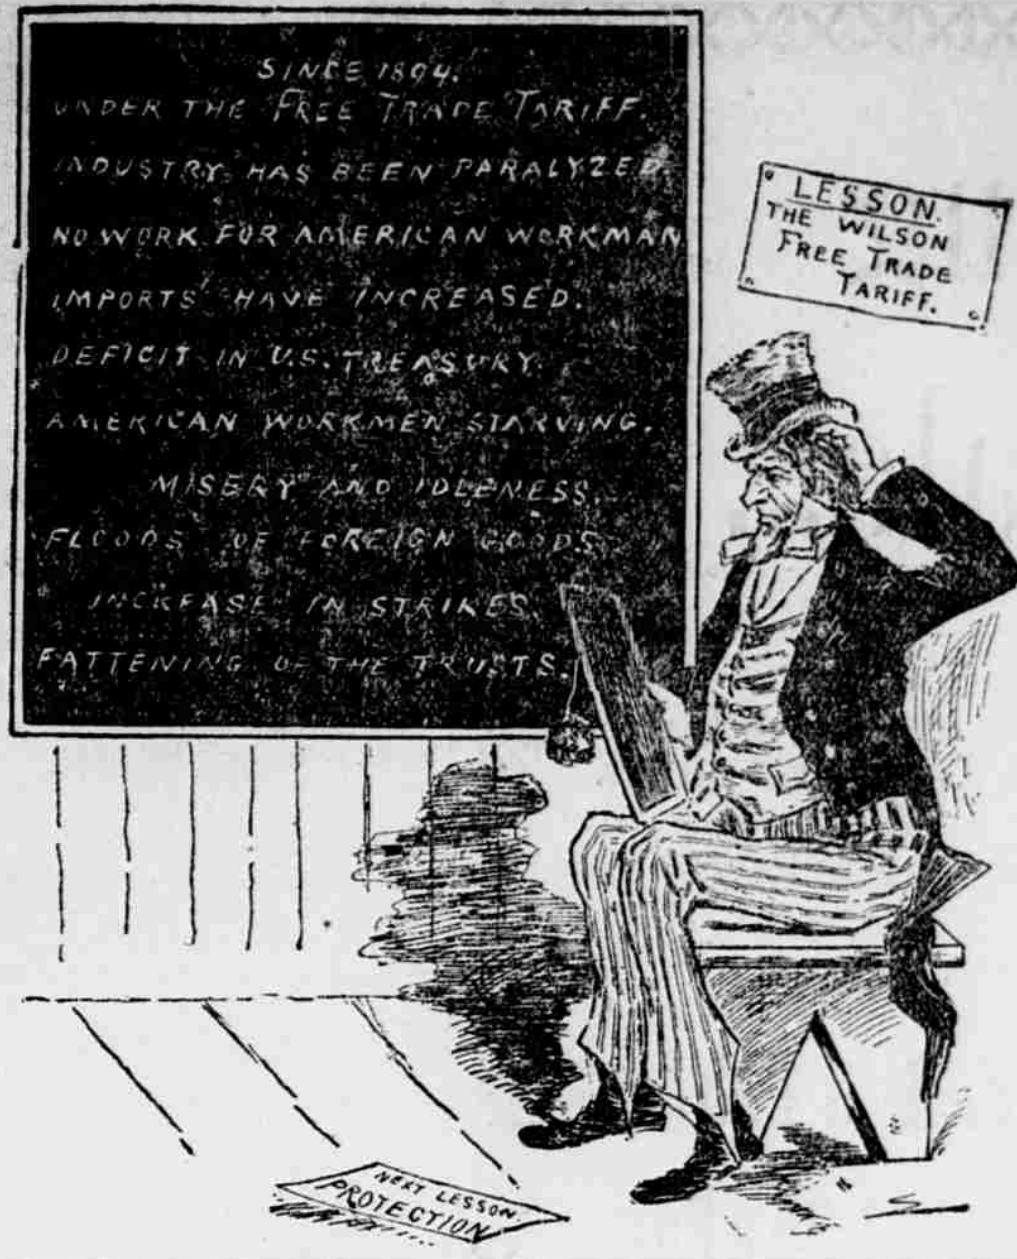 SINCE 1894.
UNDER THE FREE TRADE TARIFF.
INDUSTRY HAS BEEN PARALYZED.
NO WORK FOR AMERICAN WORKMAN
IMPORTS HAVE INCREASED.
DEFICIT IN U.S. TREASURY.
AMERICAN WORKMEN STARVING.
MISERY AND IDLENESS.
FLOODS OF FOREIGN GOODS.
INCREASE IN STRIKES
FATTENING OF THE TRUSTS.
LESSON.
THE WILSON
FREE TRADE
TARIFF.
NEXT LESSON
PROTECTION